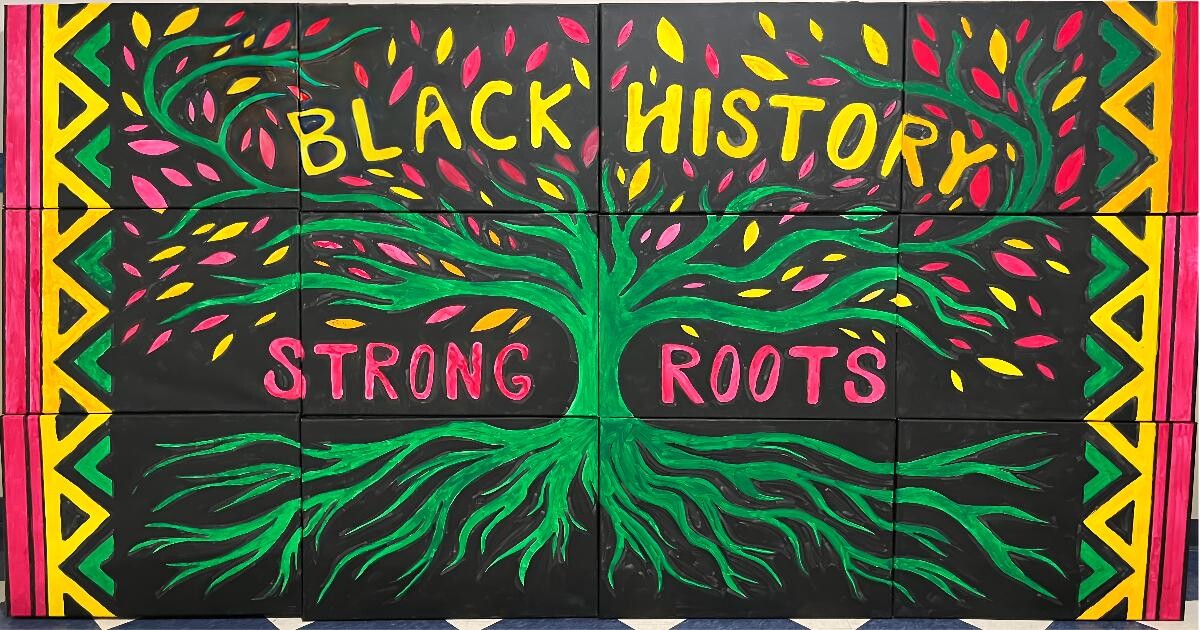 BLACK HISTORY
STRONG ROOTS